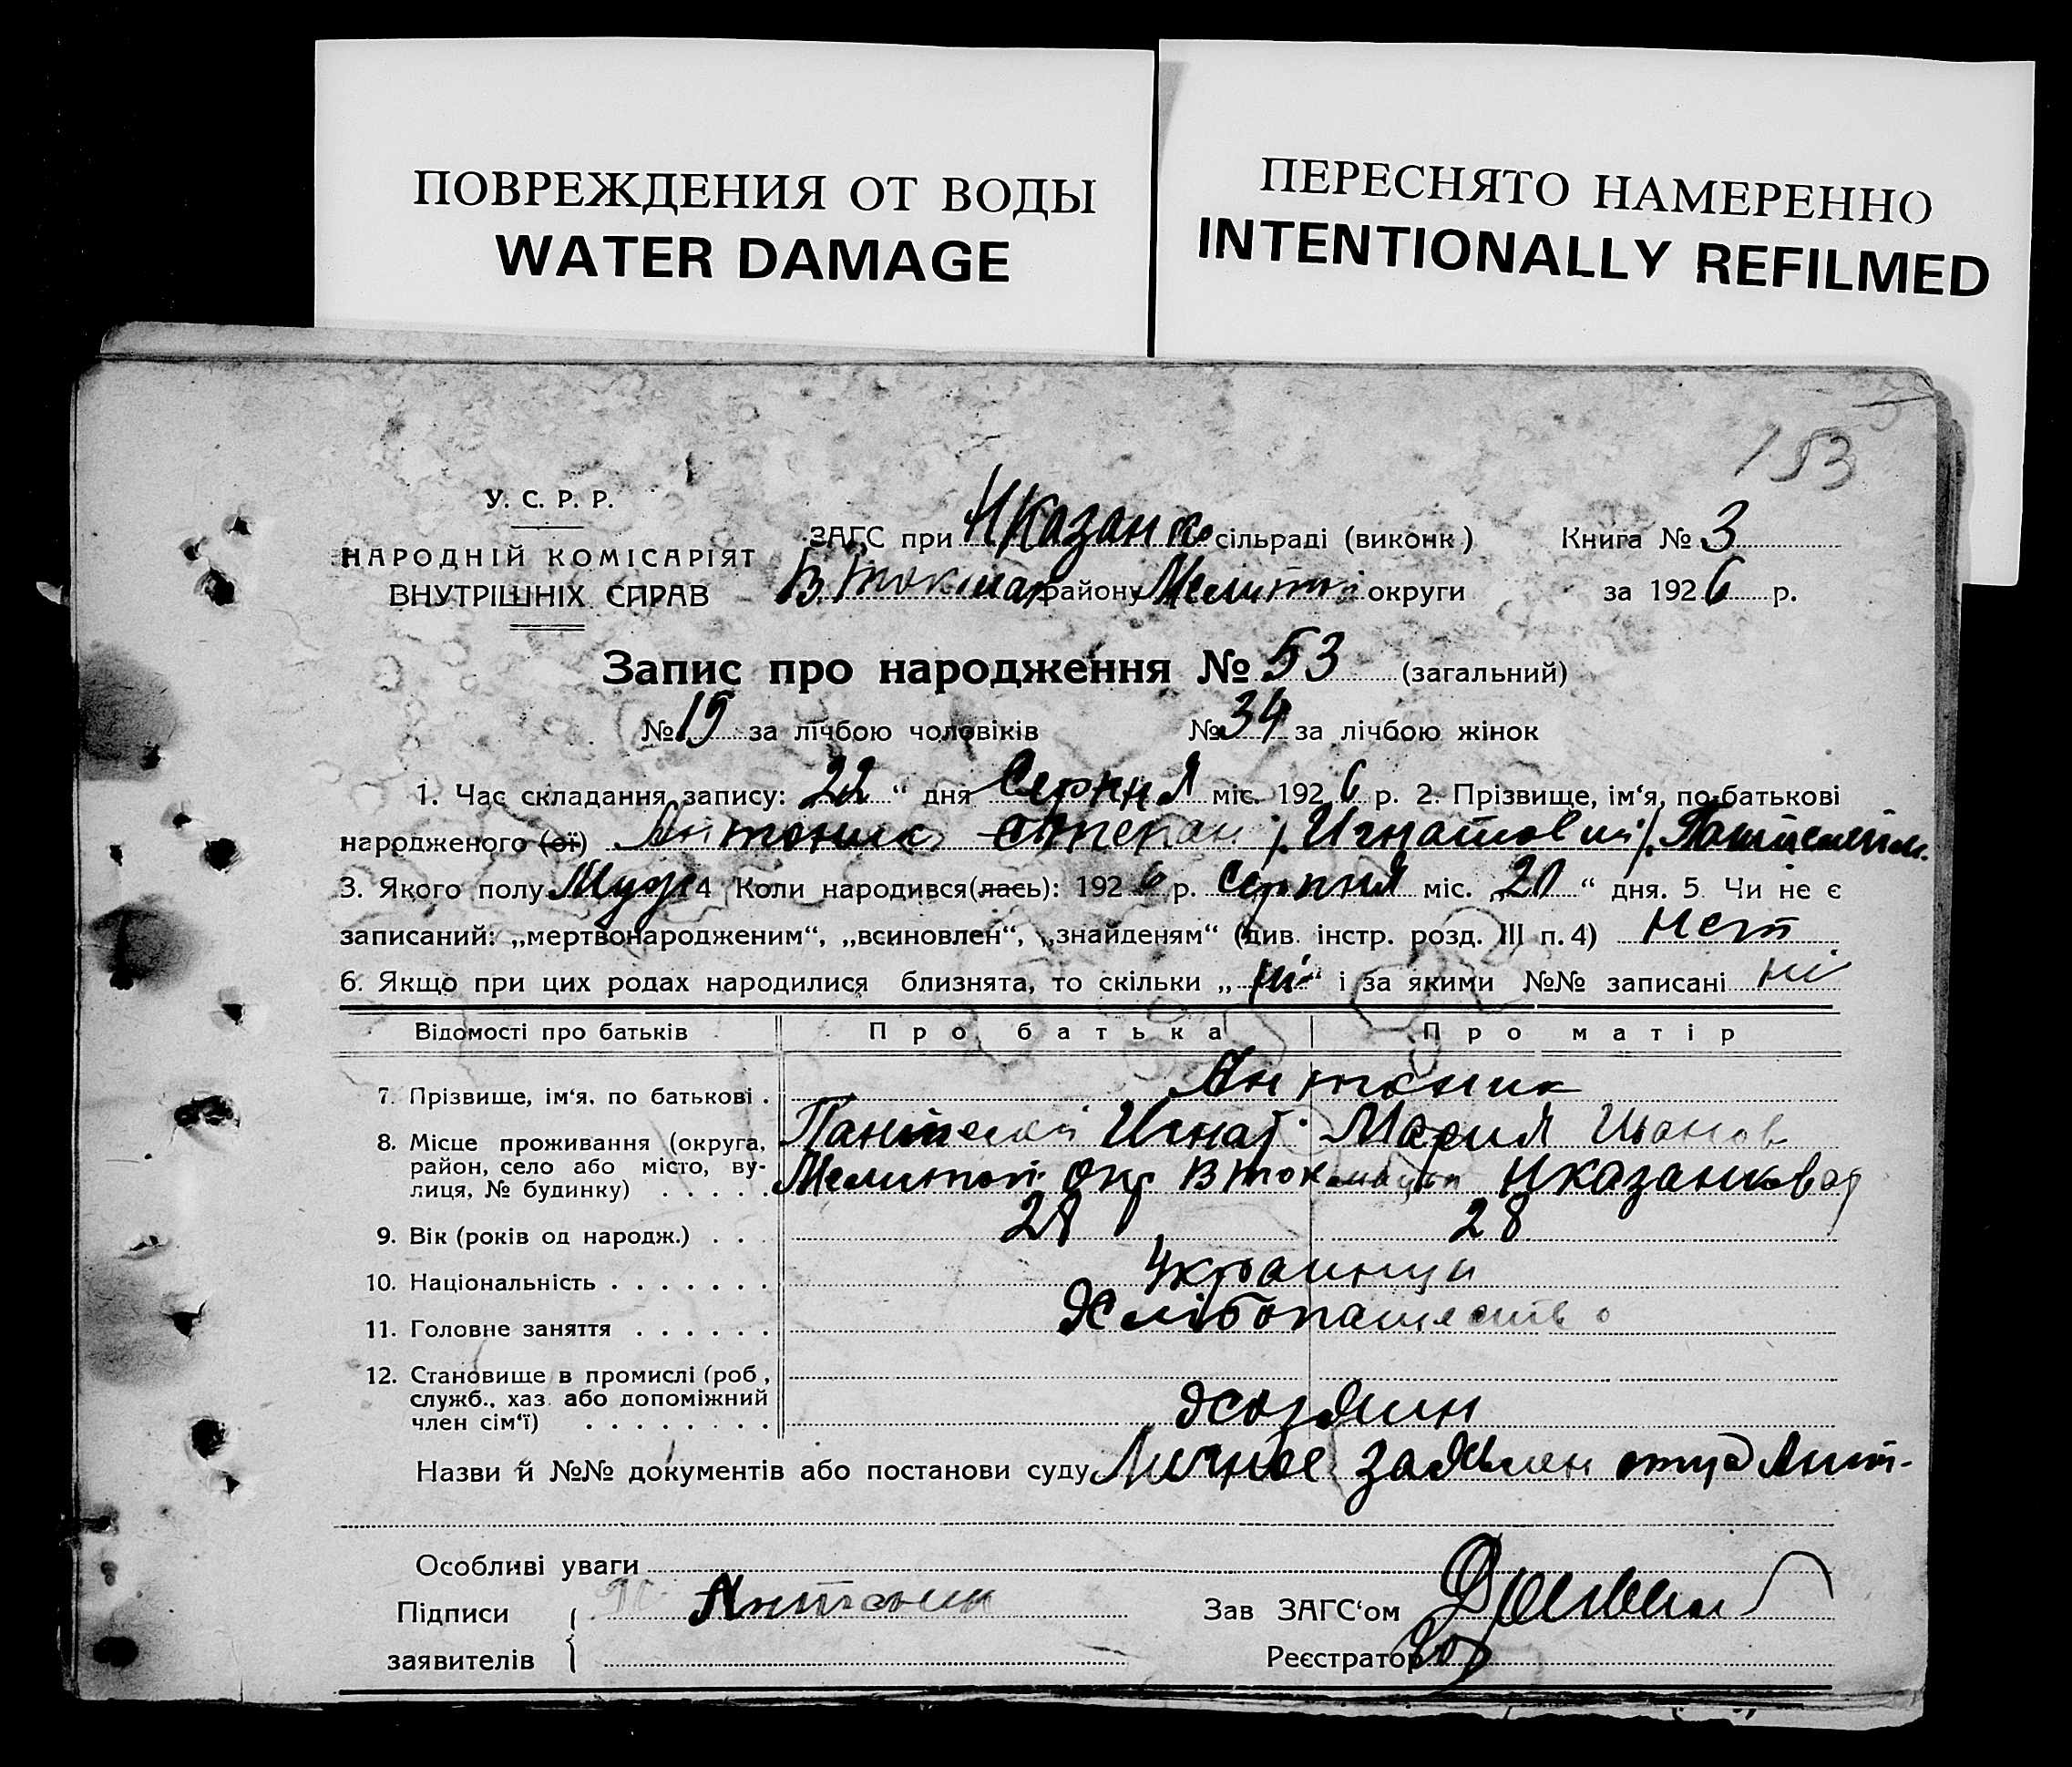 ПОВРЕЖДЕНИЯ ОТ ВОДЫ
WATER DAMAGE
ПЕРЕСНЯТО НАМЕРЕННО
INTENTIONALLY REFILMED
153
У. С. Р. Р.
НАРОДНІЙ КОМІСАРІЯТ
ВНУТРІШНІХ СПРАВ
ЗАГС при НКазанк сільраді (виконк) Книга № 3
В Токмак району Мелитп округи за 1926 р.
Запис про народження № 53 (загальний)
№ 19 за лічбою чоловіків № 34 за лічбою жінок
1. Час складання запису: 22 “ дня Серпня міс. 1926 р. 2. Прізвище, ім‘я, по-батькові
народженого (ої) Антоник Степан / Игнатовий /
3. Якого полу Муж 4 Коли народився(лась): 1926 р. Серпня міс. „20 “ дня. 5. Чи не є
записаний: „мертвонародженим“, „всиновлен“, „знайденям“ (див. інстр. розд. III п. 4) Нет
6. Якщо при цих родах народилися близнята, то скільки „ ні “ і за якими №№ записані ні
Відомості про батьків Про батька Про матір
7. Прізвище, ім‘я, по батькові . Антоник
Игнат Мария Иванов
8. Місце проживання (округа, район, село або місто, вулиця, № будинку) . . . . . Мелитоп Окр В Ток Нказанковат
9. Вік (років од народж.) . . . 28 28
10. Національність . . . . . . . Украинци
11. Головне заняття . . . . . . Хлібопашество
12. Становище в промислі (роб, служб., хаз. або допоміжний член сім‘ї) . . . . . . . . Хозяин
Назви й №№ документів або постанови суду Личное заявлен отца Ант-
Особливі уваги
Підписи Антоник Зав ЗАГС‘ом
заявителів Реєстратор